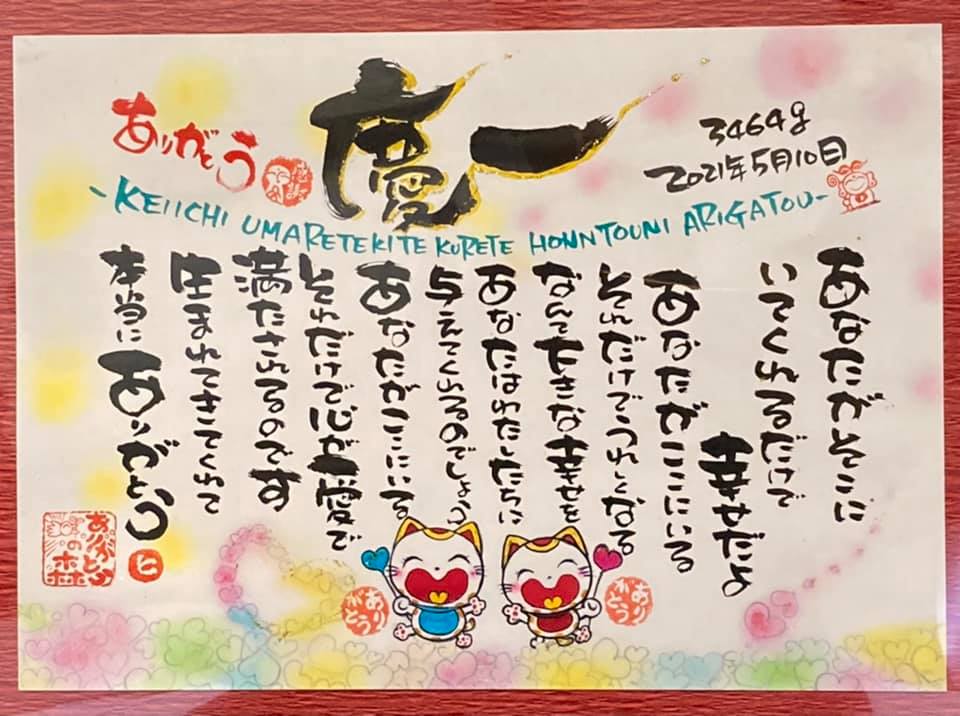 慶一
ありがとう
3464g
2021年5月10日
-KEIICHI UMARETEKITE KURETE HONNTOUNI ARIGATOU-
あなたがそこに
いてくれるだけで
幸せだよ
あなたがここにいる
それだけでうれしくなる
なんて大きな幸せを
あなたはわたしたちに
与えてくれるのでしょう
あなたがここにいる
それだけで心が愛で
満たされるのです
生まれてきてくれて
本当にありがとう
ヒ
ありがとう
の森
ありがとう
ありがとう